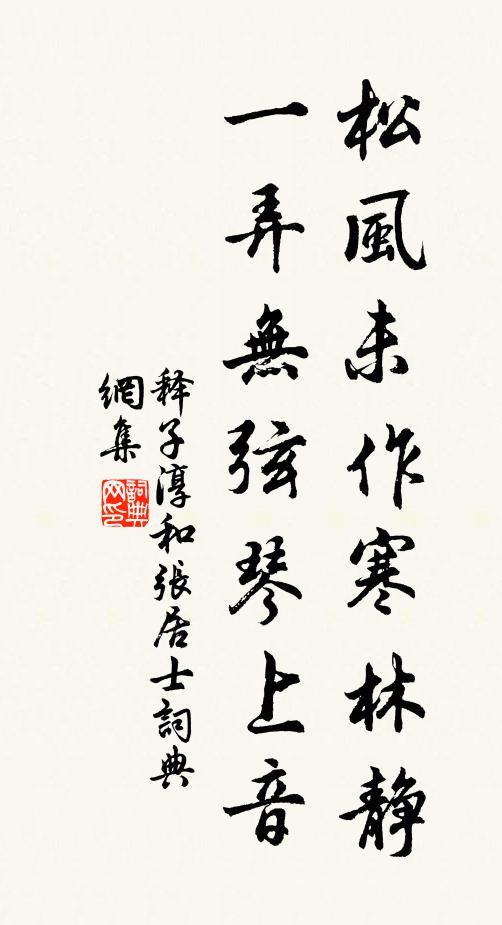 松風未作寒林靜
一弄無弦琴上音
释子淳和張居士詞典
網集
詞典網印